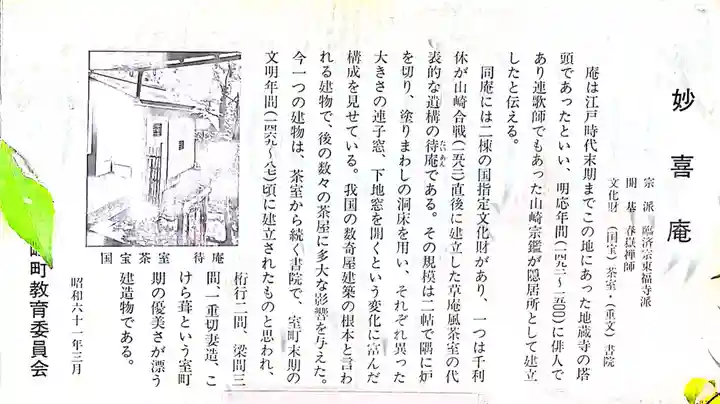 妙喜庵
宗派 臨済宗東福寺派
開基 春嶽禅師
文化財 (国宝)茶室・(重文)書院
庵は江戸時代末期までこの地にあった地蔵寺の塔
頭であったといい、明応年間(一四九二〜一五〇〇)に俳人で
あり連歌師でもあった山崎宗鑑が隠居所として建立
したと伝える。
同庵には二棟の国指定文化財があり、一つは千利
休が山崎合戦(一五八二)直後に建立した草庵風茶室の代
表的な遺構の待庵である。その規模は二帖で隅に炉
を切り、塗りまわしの洞床を用い、それぞれ異った
大きさの連子窓、下地窓を開くという変化に富んだ
構成を見せている。我国の数奇屋建築の根本と言わ
れる建物で、後の数々の茶屋に多大な影響を与えた。
今一つの建物は、茶室から続く書院で、室町末期の
文明年間(一四六九〜八七)頃に建立されたものと思われ、
桁行二間、梁間三
間、一重切妻造、こ
けら葺という室町
期の優美さが漂う
建造物である。
国宝茶室 待庵
昭和六十一年三月
町教育委員会